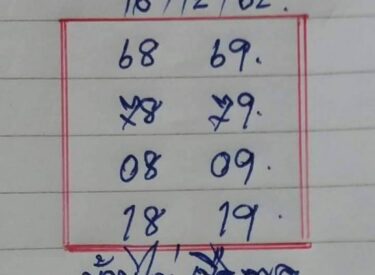 16/12/62.
68 69.
78 79.
08 09.
18 19.